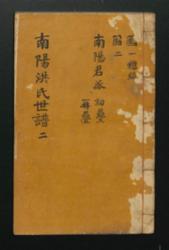 圖二
南陽君派 初疊
再疊
南陽洪氏世譜 二